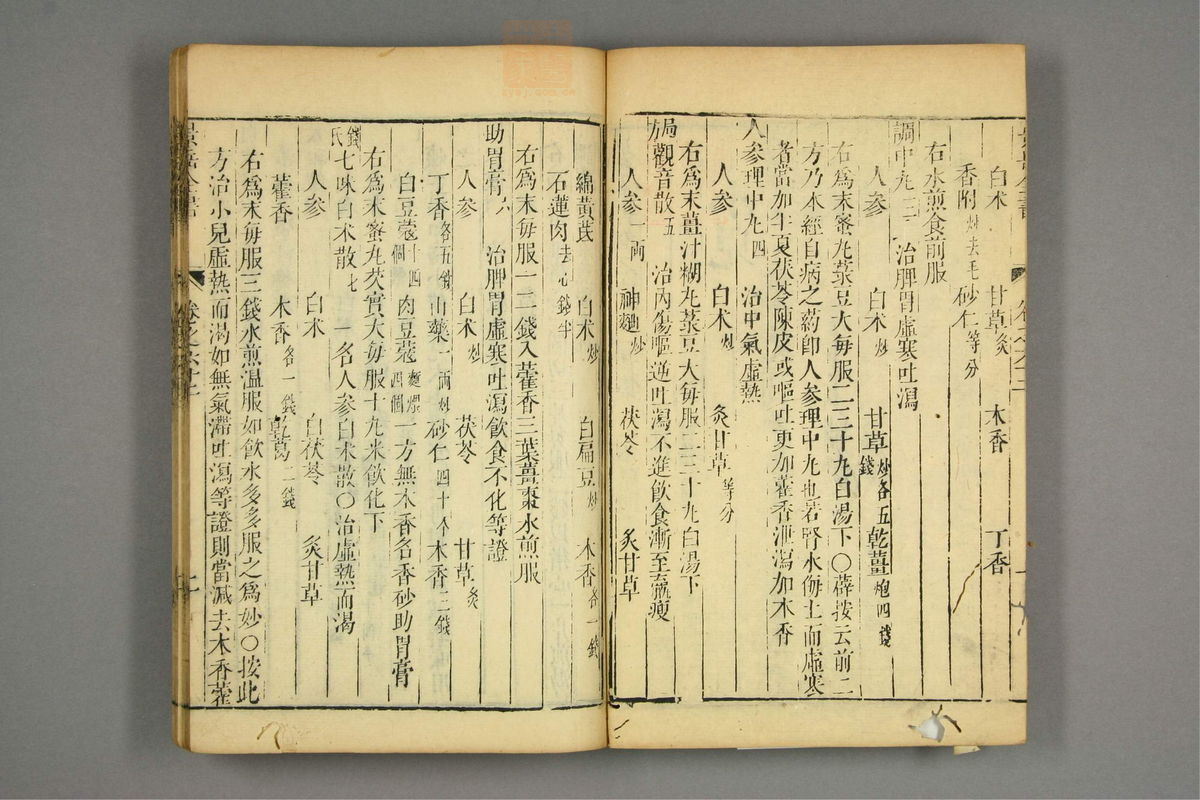 白朮 甘草炙 木香 丁香
香附炒去毛 砂仁等分
右水煎食前服
調中丸三 治脾胃虛寒吐瀉
人參 白朮炒 甘草炒各五錢 乾薑炮四錢
右爲末蜜丸菉豆大每服二三十丸白湯下○薜按云前二
方乃本經自病之葯卽人參理中丸也若腎水侮土而虛寒
者當加半夏茯苓陳皮或嘔吐更加藿香泄瀉加木香
人參理中丸四 治中氣虛熱
人參 白朮炒 炙甘草等分
右爲末薑汁糊丸菉豆大每服二三十丸白湯下
局方觀音散五 治內傷嘔逆吐瀉不進飲食漸至羸瘦
人參一兩 神麯炒 茯苓 炙甘草
綿黃芪 白朮炒 白扁豆炒 木香各一錢
石蓮肉去心錢半
右爲末每服一二錢入藿香三葉薑棗水煎服
助胃膏六 治脾胃虛寒吐瀉飲食不化等證
人參 白朮炒 茯苓 甘草炙
丁香各五錢 山藥一兩炒 砂仁四十个 木香三錢
白豆蔻十四個 肉豆蔻麵煨四個 一方無木香名香砂助胃膏
右爲末蜜丸芡實大每服十丸米飲化下
錢氏七味白朮散七 一名人參白朮散○治虛熱而渴
人參 白朮 白茯苓 炙甘草
藿香 木香各一錢 乾葛二錢
右爲末每服三錢水煎溫服如飲水多多服之爲妙○按此
方治小兒虛熱而渴如無氣滯吐瀉等證則當減去木香藿